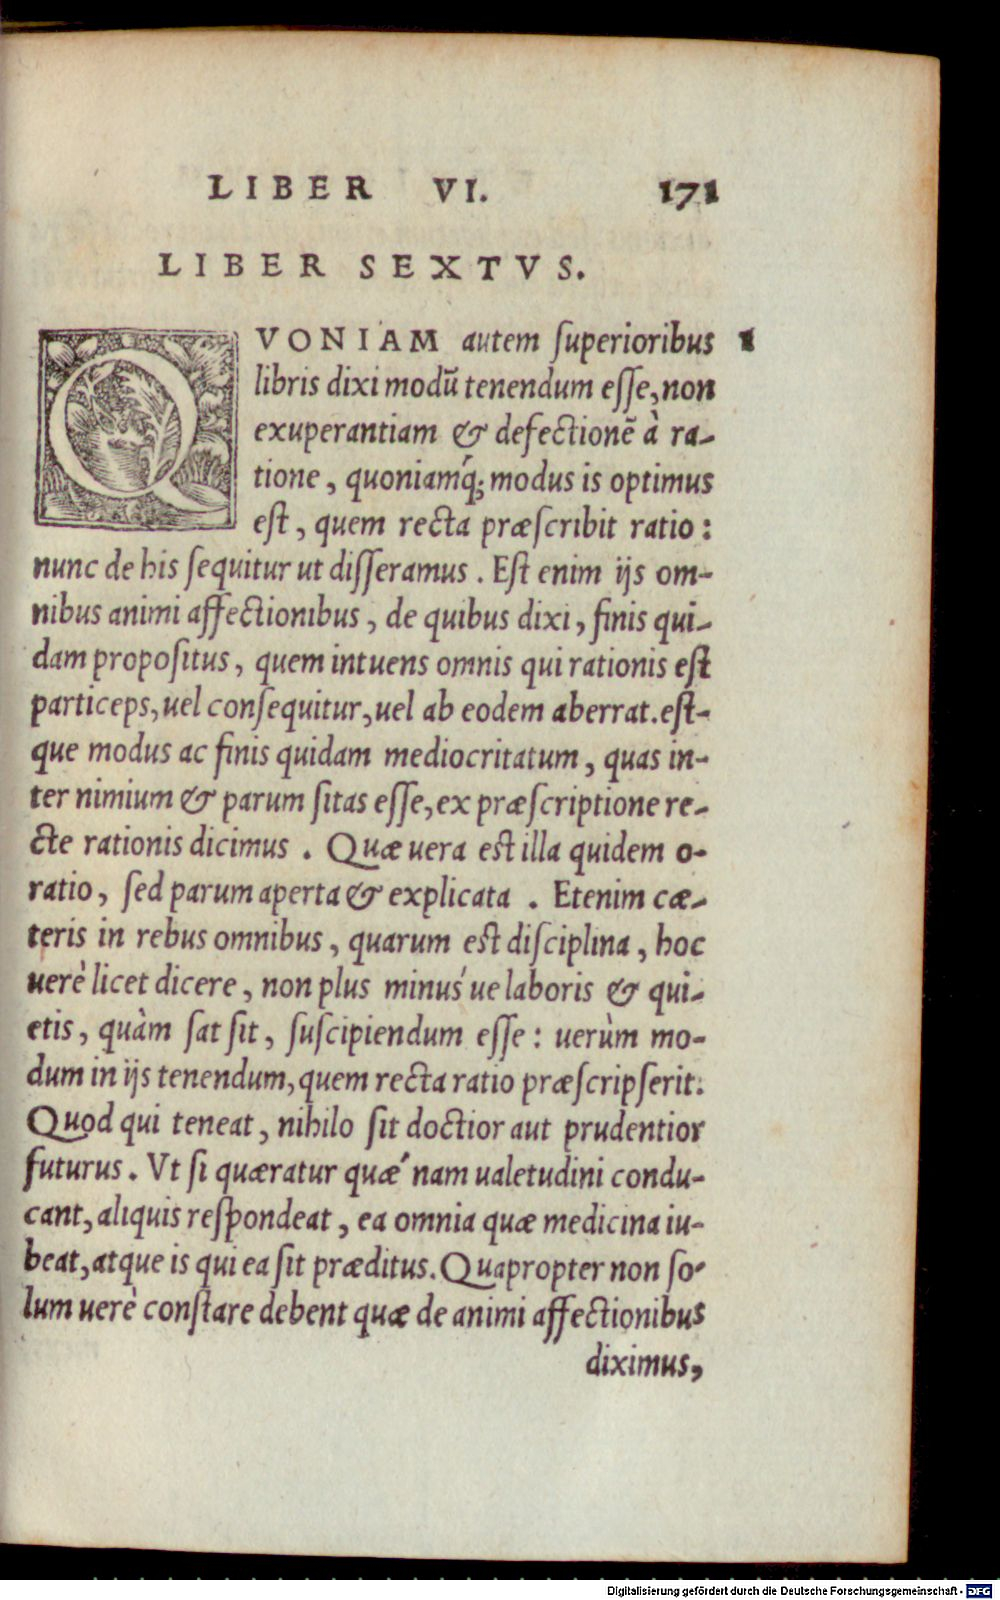 LIBER VI. 171
LIBER SEXTVS.
QVONIAM autem ſuperioribus 1
libris dixi modū tenendum eſſe, non
exuperantiam & defectionē à ra-
tione, quoniamq́; modus is optimus
eſt, quem recta præſcribit ratio:
nunc de his ſequitur ut diſſeramus. Eſt enim ijs om-
nibus animi affectionibus, de quibus dixi, finis qui-
dam propoſitus, quem intuens omnis qui rationis eſt
particeps, uel conſequitur, uel ab eodem aberrat. eſt-
que modus ac finis quidam mediocritatum, quas in-
ter nimium & parum ſitas eſſe, ex præſcriptione re-
cte rationis dicimus. Quæ uera eſt illa quidem o-
ratio, ſed parum aperta & explicata. Etenim cæ-
teris in rebus omnibus, quarum eſt diſciplina, hoc
uerè licet dicere, non plus minuś ue laboris & qui-
etis, quàm ſat ſit, ſuſcipiendum eſſe: uerùm mo-
dum in ijs tenendum, quem recta ratio præſcripſerit.
Quod qui teneat, nihilo ſit doctior aut prudentior
futurus. Vt ſi quæratur quæ´ nam ualetudini condu-
cant, aliquis reſpondeat, ea omnia quæ medicina iu-
beat, atque is qui ea ſit præditus. Quapropter non ſo-
lum uerè conſtare debent quæ de animi affectionibus
diximus,
Digitalisierung gefördert durch die Deutsche Forschungsgemeinschaft - DFG